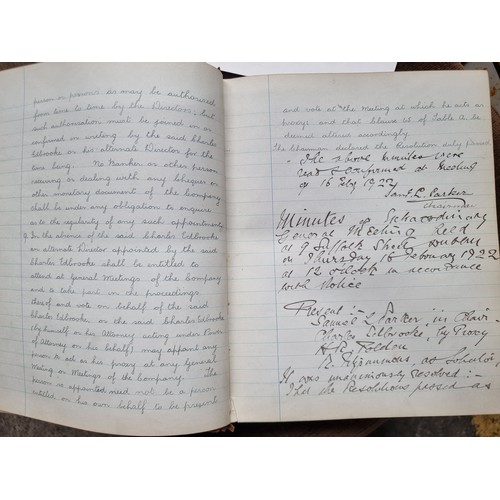 person or persons as may be authorised
from time to time by the Directors but
such authorisation must be joined in or
confirmed in writing by the said Charles
Edbrooke or his alternate Director for the
time being. No Banker or other person
receiving or dealing with any cheques or other
monetary document of the Company
shall be under any obligation to enquire
into the regularity of any such appointments
In the absence of the said Charles Edbrooke
an alternate Director appointed by the said
Charles Edbrooke shall be entitled to
attend at General Meetings of the Company
and to take part in the proceedings
thereof and vote on behalf of the said
Charles Edbrooke, or the said Charles Edbrooke
(by himself or his Attorney acting under Power
of Attorney on his behalf) may appoint any
person to act as his proxy at any General
Meeting or Meetings of the Company. The
person so appointed need not be a person
entitled on his own behalf to be present
and vote at the Meeting at which he acts as
proxy and that clause of Table A be
deemed altered accordingly.
The Chairman declared the Resolution duly passed
The above minutes were
read & confirmed at Meeting
of 16 Feby 1922
Saml L. Parker
Chairman
Minutes of Extraordinary
General Meeting held
at 9 Suffolk Street Dublin
on Thursday 16 February 1922
at 12 o'clock in accordance
with Notice
Present :-
Samuel L Parker, in Chair
Charles Edbrooke, by Proxy
H. Holden
R. Fitzsimons, as Solicitor
It was unanimously resolved :-
That the Resolutions passed as